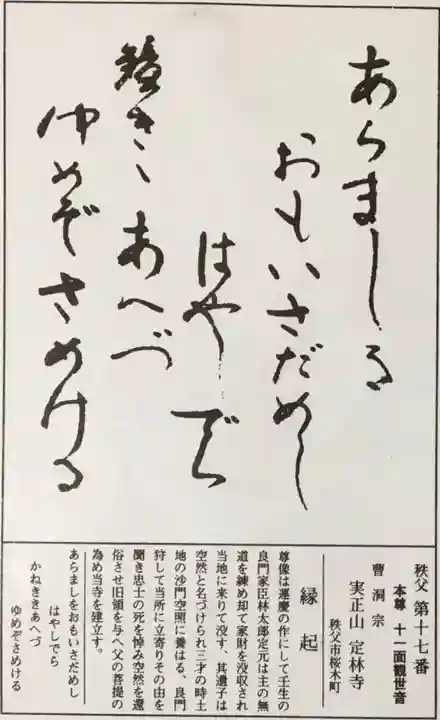 あらましを
おもいさだめし
はやしでら
鐘きゝあへづ
ゆめぞさめける
秩父 第十七番
本尊 十一面観世音
曹洞宗
実正山 定林寺
秩父市桜木町
縁起
尊像は運慶の作にして壬生の
良門家臣林太郎定元は主の無
道を練め却て家財を没収され
当地に来りて没す、其遺子は
空然と名づけられ三才の時土
地の沙門空照に養はる、良門
狩して当所に立寄りその由を
聞き忠士の死を悼み空然を還
俗させ旧領を与へ父の菩提の
為め当寺を建立す。
あらましをおもいさだめし
はやしでら
かねききあへづ
ゆめぞさめける